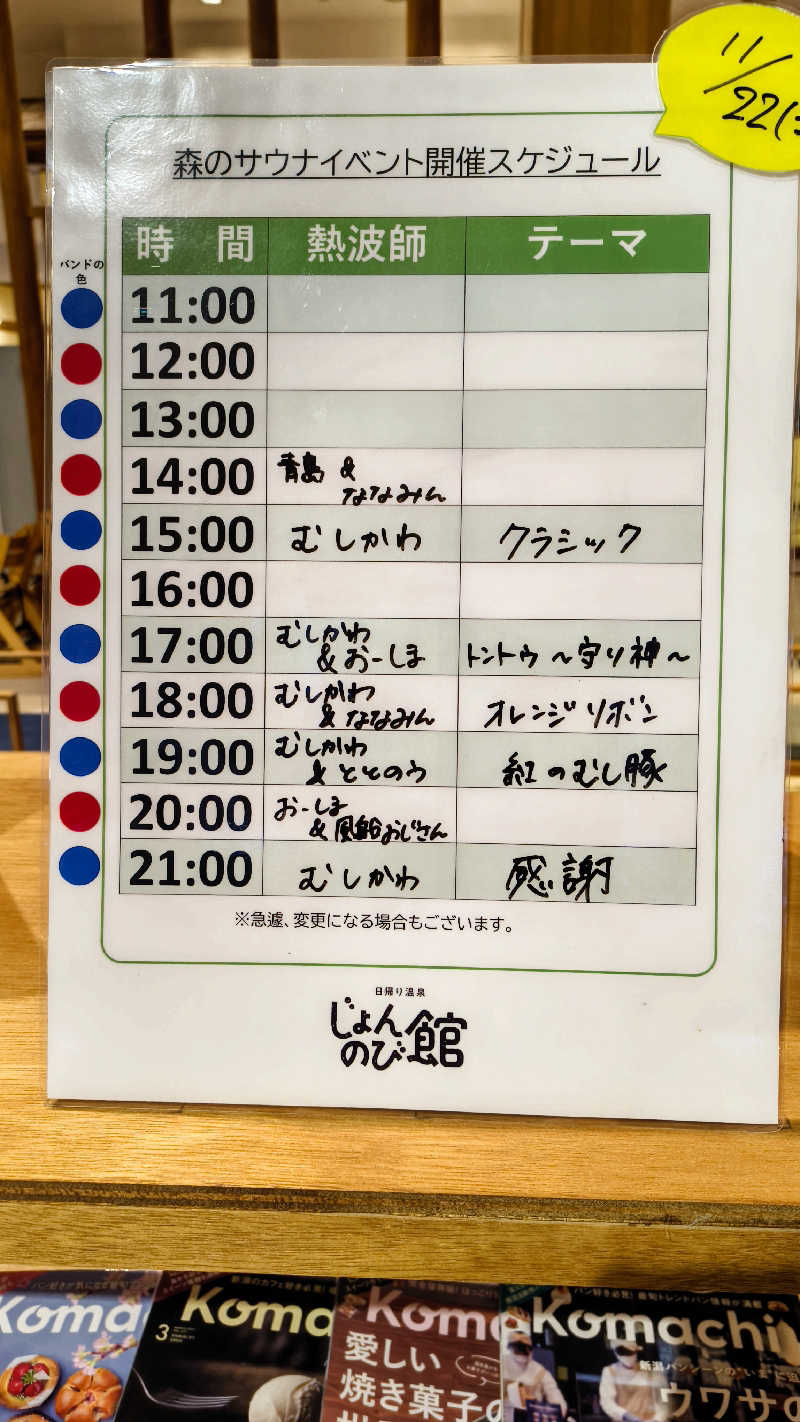 11/22(
森のサウナイベント開催スケジュール
バンドの
色
時 間 熱波師 テーマ
11:00
12:00
13:00
14:00 青島 &
ななみん
15:00 むしかわ クラシック
16:00
17:00 むしかわ
&おーしま トントゥ～守り神～
18:00 むしかわ
&ななみん オレンジリボン
19:00 むしかわ
&ととのう 紅のむし豚
20:00 おーしま
&風船おじさん
21:00 むしかわ 感謝
※急遽、変更になる場合もございます。
日帰り温泉
じょん
のび館
Koma
3
Koma
Koma
愛しい
焼き菓子の
Komachi
ウワサの